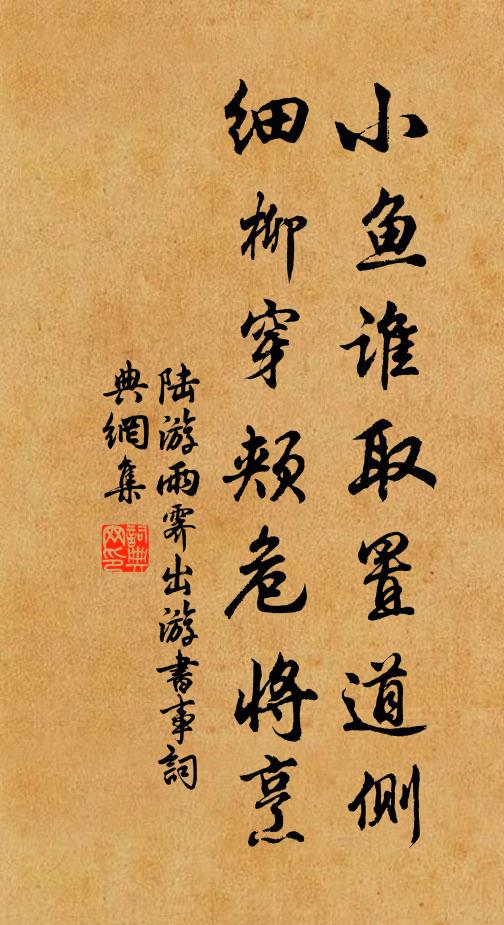 小鱼谁取置道侧
细柳穿颊危将烹
陆游雨霁出游书事词
典網集
詞典網印